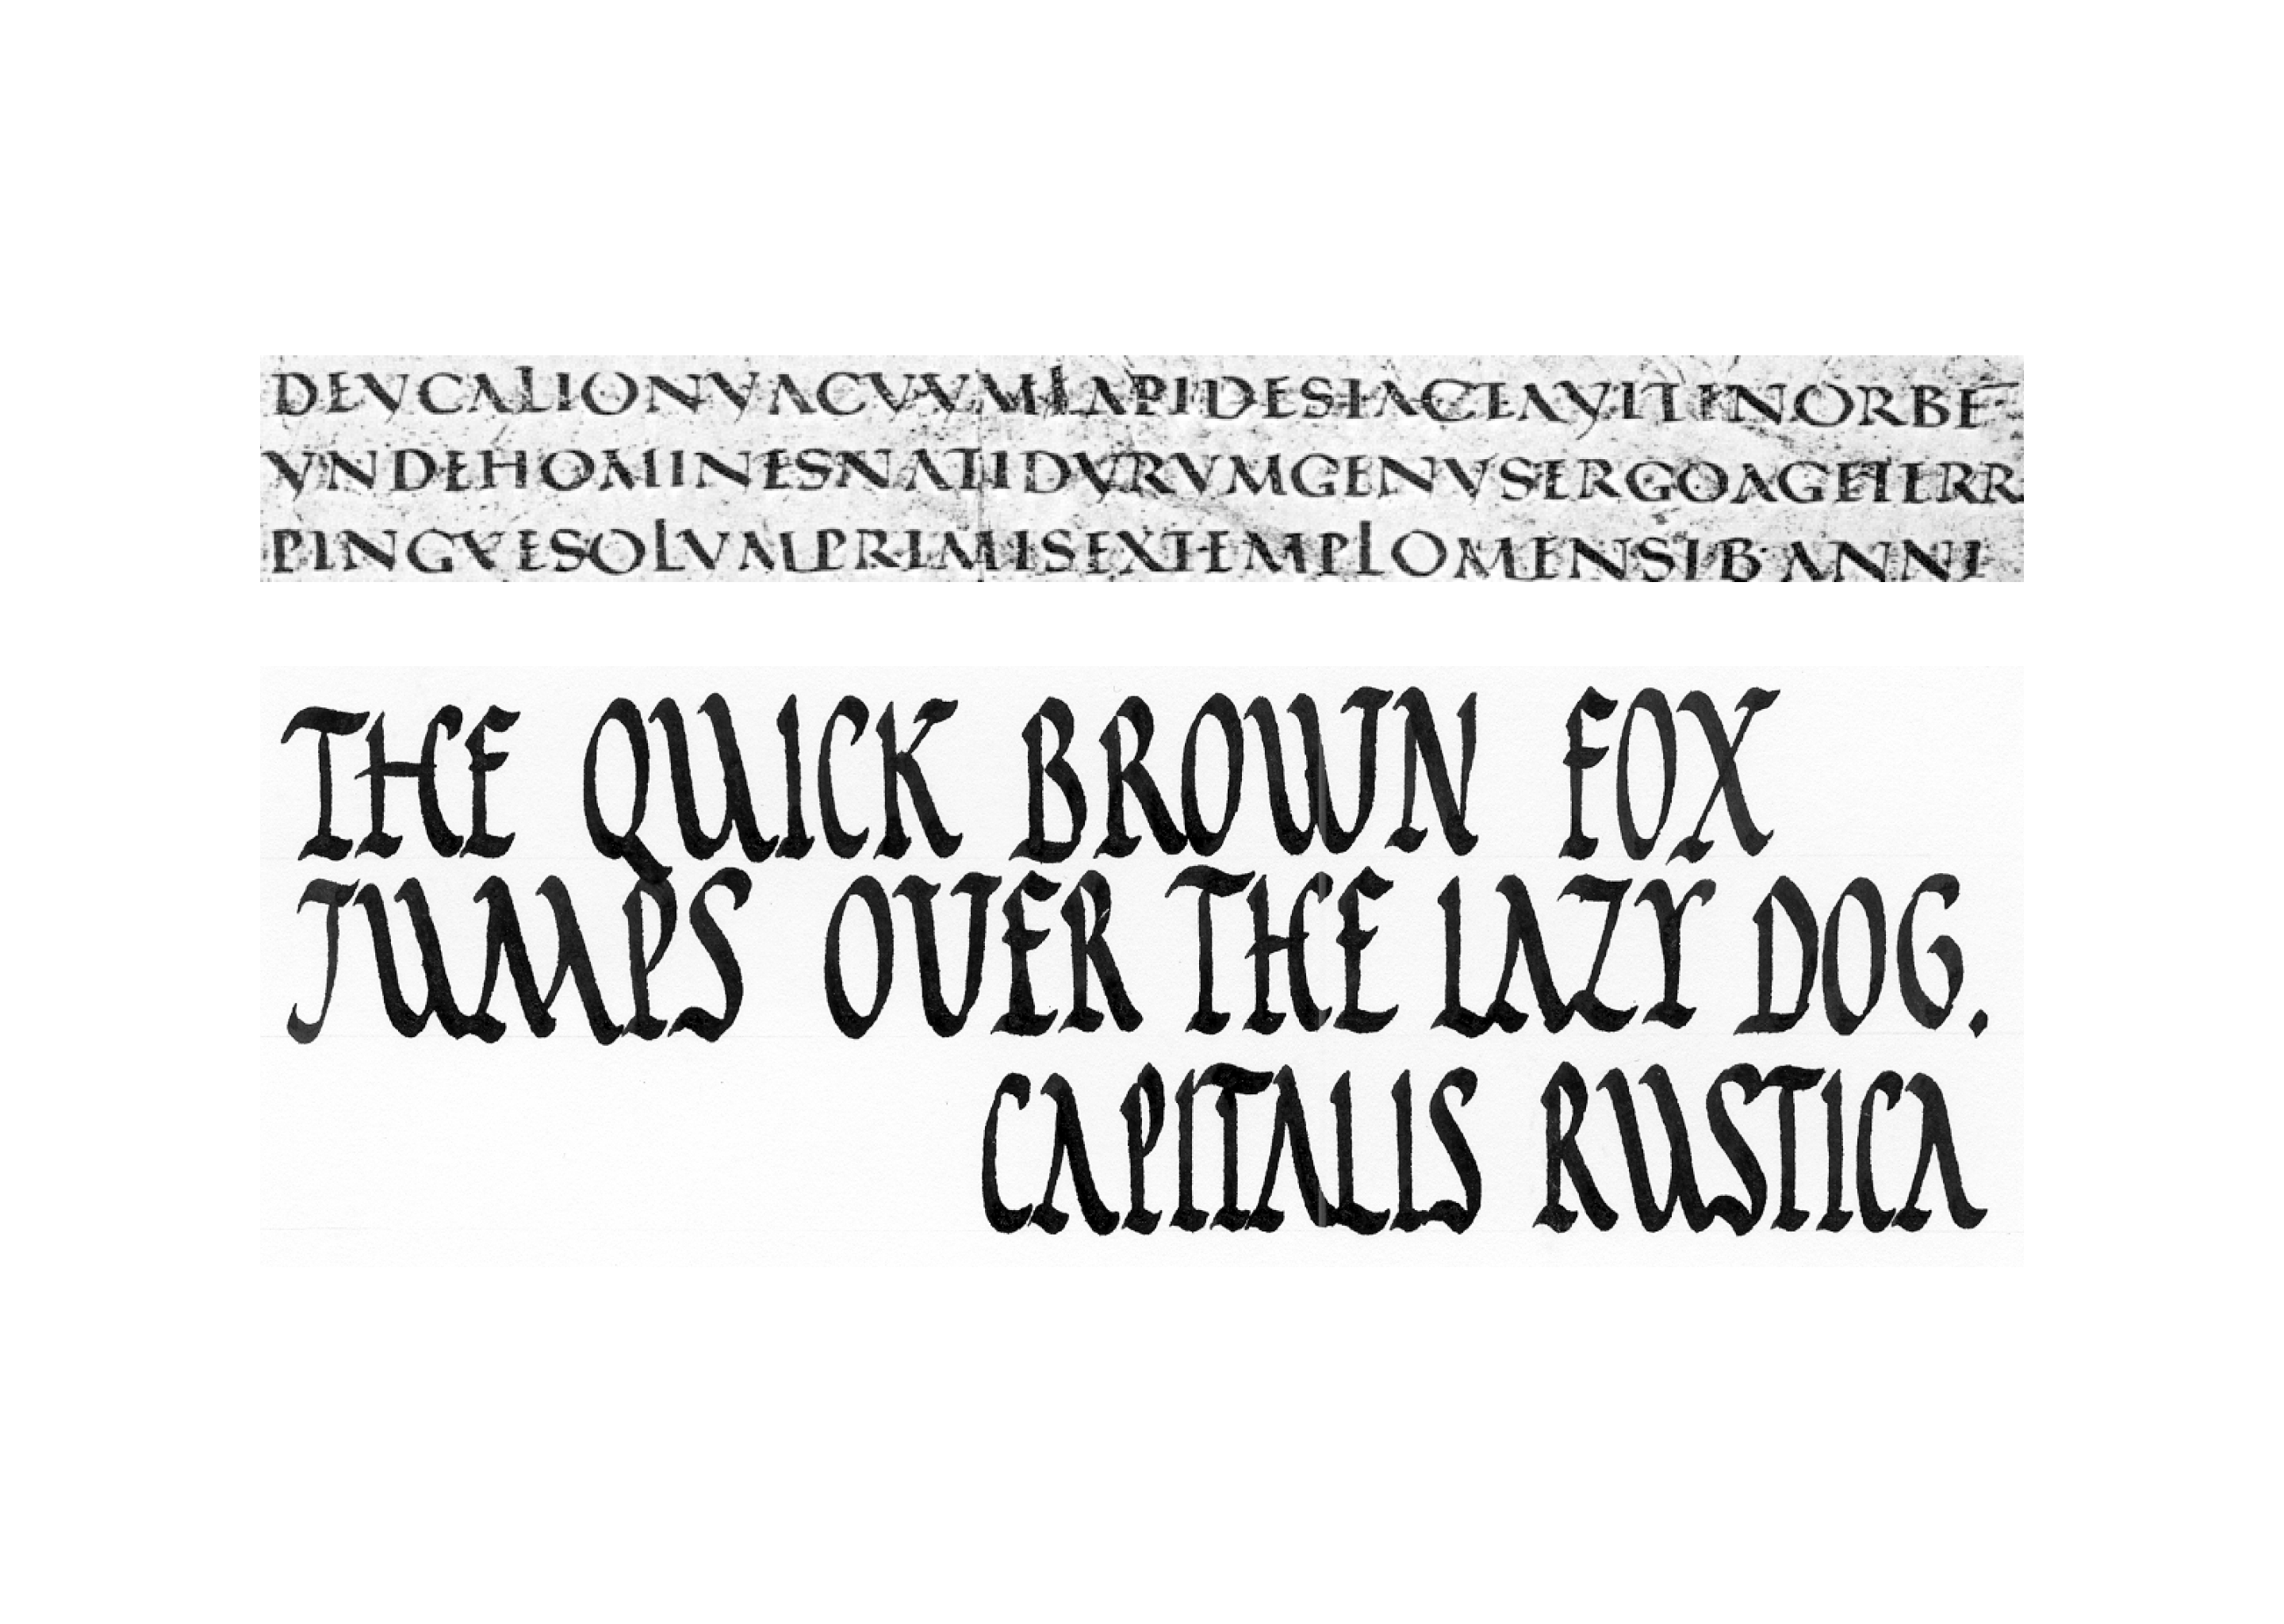 DEVCALIONVACVVMLAPIDESIACTAVITINORBE
VNDEHOMINESNATIDVRVMGENVSERGOAGETERR
PINGVESOLVMPRIMISEXTEMPLOMENSIB·ANNI
THE QUICK BROWN FOX
JUMPS OVER THE LAZY DOG.
CAPITALIS RUSTICA